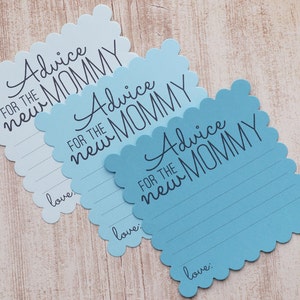 Advice
FOR THE
new MOMMY
love:
Advice
FOR THE
new MOMMY
love:
Advice
FOR THE
new MOMMY
love: